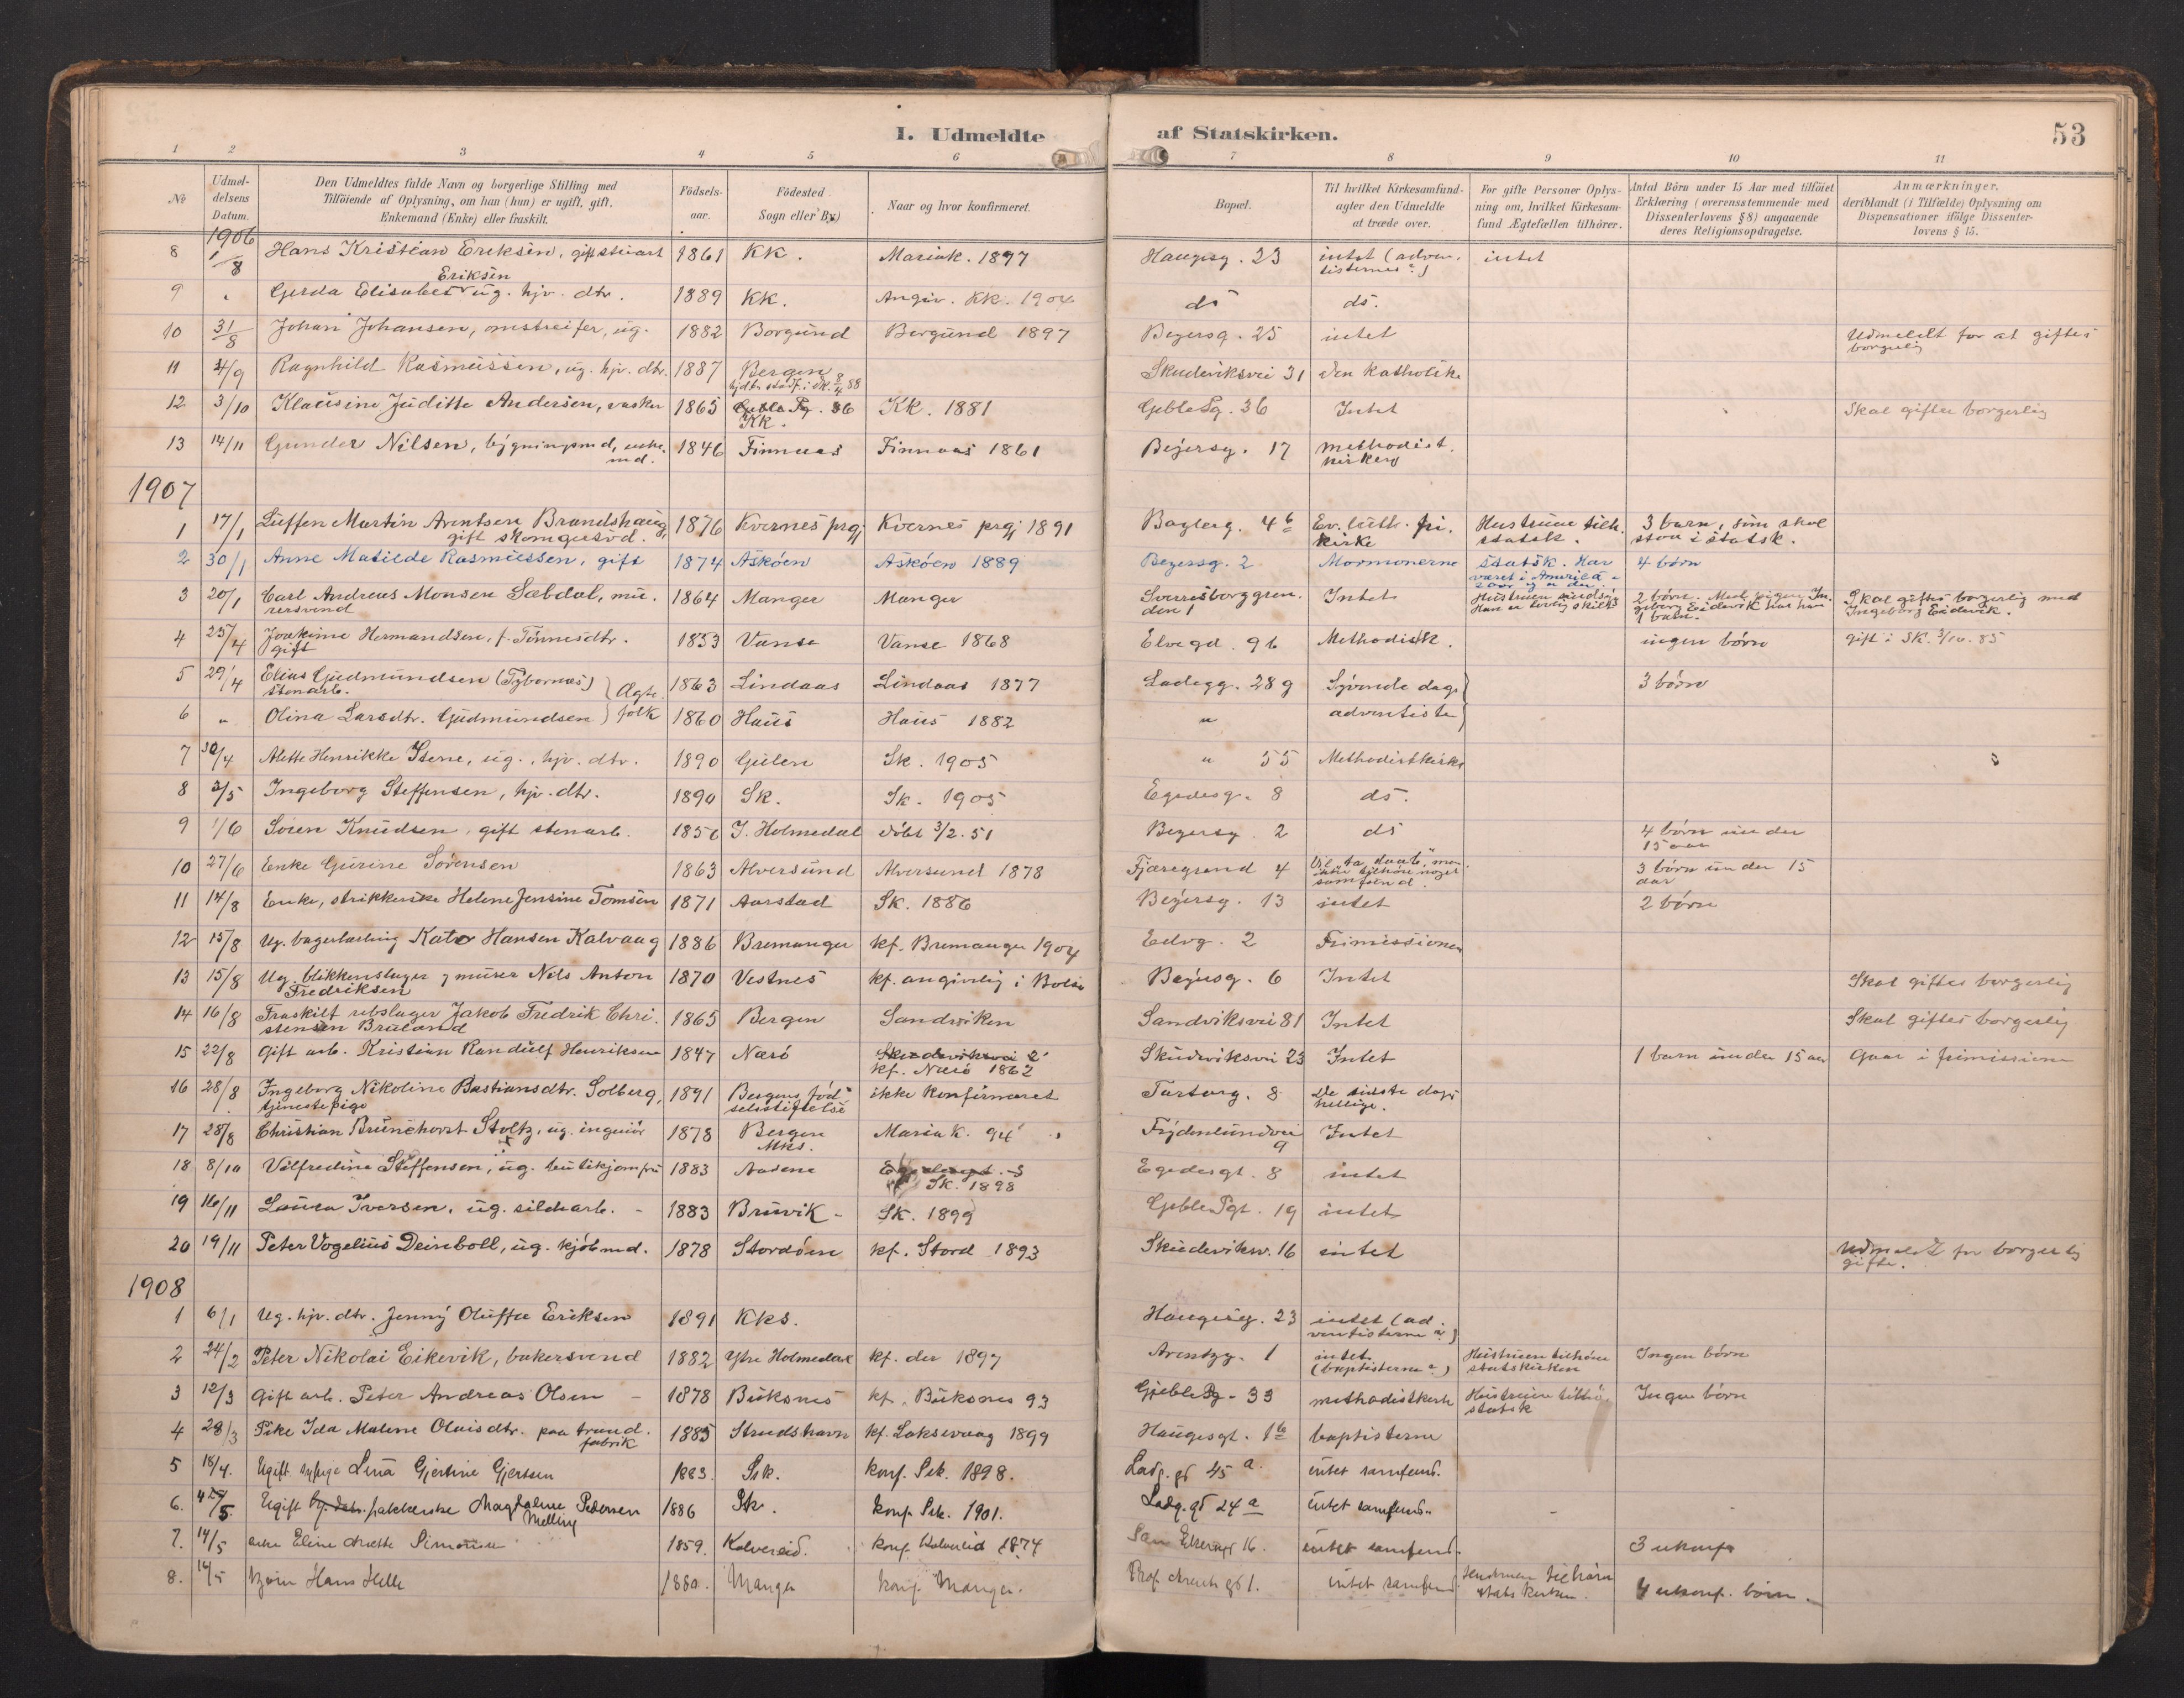 I. Udmeldte af Statskirken.
53
1 2 3 4 5 6 7 8 9 10 11
No
Udmel-
delsens
Datum.
Den Udmeldtes fulde Navn og borgerlige Stilling med
Tilföiende af Oplysning, om han (hun) er ugift, gift,
Enkemand (Enke) eller fraskilt.
Födsels-
aar.
Födested
Sogn eller By)
Naar og hvor konfirmeret.
Bopæl.
Til hvilket Kirkesamfund
agter den Udmeldte
at træde over.
For gifte Personer Oplys-
ning om, hvilket Kirkesam-
fund Ægtefællen tilhörer.
Antal Börn under 15 Aar med tilföiet
Erklæring (overensstemmende med
Dissenterlovens § 8) angaaende
deres Religionsopdragelse.
Anmærkninger,
deriblandt (i Tilfælde) Oplysning om
Dispensationer ifölge Dissenter-
lovens § 15.
1906
8 1/8 Hans Kristian Eriksen, gift stuart 1861 KK. Mariak. 1877 Haugesg. 23 intet (adven. intet
tisternes?)
Eriksen
9 " Gerda Elisabet ug. hjv. dtr. 1889 KK. Angiv. KK. 1904 do do.
10 31/8 Johan Johansen, omstreifer, ug. 1882 Borgund Borgund 1897 Beyersg. 25 intet Udmeldt for at giftes
borgerlig
11 4/9 Ragnhild Rasmussen, ug. hjv. dtr. 1887 Bergen Skudeviksvei 31 den katholske
hjdb. stadf. i Sk. 8/4 88
12 3/10 Klausine Juditte Andersen, vasker 1865 Geble Pg. 36 KK. 1881 Geble Pg. 36 Intet Skal giftes borgerlig
KK.
13 14/11 Gunder Nilsen, bygningsmd, enke. 1846 Finnaas Finnaas 1861 Beyersg. 17 methodist.
md. kirken
1907
1 17/1 Luffen Martin Arentsen Brandshaug, 1876 Kvernes prgj Kvernes prgj 1891 Baglerg. 4b Ev. luth. fri. Hustruen tilh. 3 barn, som skal
gift skomgersvd. kirke statsk. staa i statsk.
2 30/1 Anne Matilde Rasmussen, gift 1874 Askøen Askøen 1889 Beyersg. 2 Mormonerne statsk. Har 4 börn
været i America
3 20/1 Carl Andreas Monsen Sæbdal, mu. 1864 Manger Manger Sverresborggren. Intet Hustruen 2 börn. Med pigen In. Skal giftes borgerlig med
rersvend den 1 Han er lovlig skilt geborg Eidevik har han Ingeborg Eidevik.
1 barn.
4 25/4 Joakime Hermandsen, f. Tønnesdtr. 1853 Vanse Vanse 1868 Elvegd. 9b Methodistk. ingen börn gift i SK. 3/10. 85
gift
5 29/4 Elias Gudmundsen (Tybornes) } Ægte. 1863 Lindaas Lindaas 1877 Ladegg. 28g Syvende dags} 3 börn
stenarb.
6 " Olina Larsdtr. Gudmundsen } folk 1860 Haus Haus 1882 " adventiste}
7 30/4 Alette Henrikke Stene, ug., hjv. dtr. 1890 Gulen Sk. 1905 " 55 Methodistkirke
8 3/5 Ingeborg Steffensen, hjv. dtr. 1890 Sk. Sk. 1905 Egedesg. 8 do.
9 1/6 Søren Knudsen, gift stenarb. 1850 Y. Holmedal døbt 3/2. 51 Beyersg. 2 do 4 börn under
15 aar
10 27/6 Enke Gurine Sørensen 1863 Alversund Alversund 1878 Fjæregrend 4 Vil "ta daab", men 3 börn under 15
ikke tilhøre noget aar
samfund.
11 14/8 Enke, strikkerske Helene Jensine Tomsen 1871 Aarstad Sk. 1886 Beyersg. 13 intet 2 börn
12 15/8 Ug. bagerlærling Kato Hansen Kalvaag 1886 Bremanger kf. Bremanger 1904 Edvg. 2 Frimissionen
13 15/8 Ug. blikkenslager & murer Nils Anton 1870 Vestnes kf. angivelig i Bolsø Beyersg. 6 Intet Skal giftes borgerlig
Fredriksen
14 16/8 Fraskilt rebslager Jakob Fredrik Chri. 1865 Bergen Sandviken Sandviksvei 81 Intet Skal giftes borgerlig
stensen Braland
15 22/8 Gift arb. Kristian Randulf Henriksen 1847 Næsø Skudeviksvei 2 Skudeviksvei 23 Intet 1 barn under 15 aar Gaar i frimissionen
kf. Næsø 1862
16 28/8 Ingeborg Nikoline Bastiansdtr. Solberg, 1891 Bergens fød- ikke konfirmeret Tartarg. 8 De sidste dages
tjenestepige selsstiftelse hellige.
17 28/8 Christian Brunchorst Stoltz, ug. ingeniør 1878 Bergen Maria K. 94 Frydenlundvei Intet
Mks. 9
18 8/10 Vilfredine Steffensen, ug. butikjomfru 1883 Aadene Egedesgt. 8 Egedesgt. 8 intet
Sk. 1898
19 16/11 Laura Iversen, ug. sildearb. - 1883 Bruvik - Sk. 1899 Geble Pgt. 19 intet
20 19/11 Peter Vogelius Deinboll, ug. kjøbmd. 1878 Stordøen kf. Stord 1893 Skudeviksv. 16 intet Udmeldt for borgerlig
gifte.
1908
1 6/1 Ug. hjv. dtr. Jenny Oluffa Eriksen 1891 Kks. Haugesg. 23 intet (ad.
ventisterne?)
2 24/2 Peter Nikolai Eikevik, bakersvend 1882 Ytre Holmedal kf. der 1897 Arentzg. 1 intet Hustruen tilhører Ingen börn
(baptisterne?) statskirken
3 12/3 Gift arb. Peter Andreas Olsen - 1878 Buksnes kf. Buksnes 93 Gjeble Pg - 33 methodistkirke Hustruen tilhø. Ingen börn
statsk
4 28/3 Pike Ida Malene Olaisdtr. paa traad. 1885 Strudshavn kf. Laksevaag 1899 Haugesgt. 1b baptisterne
fabrik
5 18/4. Ugift sypige Lina Gjertine Gjertsen 1883. Ssk. konf. Ssk. 1898. Ladg. gd 45 a. intet samfund.
6. 5. Ugift pakkerske Magdalene Pedersen 1886 Sk. konf. Ssk. 1901. Ladg. gd 24 a intet samfund.
Melling
7. 14/5 enke Eline Simonsen 1859. Kolvereid. konf. Kolvereid 1874 16. intet samfund. 3 ukonf.
8. 14/5 Hans Helle 1880. Manger konf. Manger. 1. intet samfund. Hustruen tilhører 4 ukonf. børn.
statskirken.